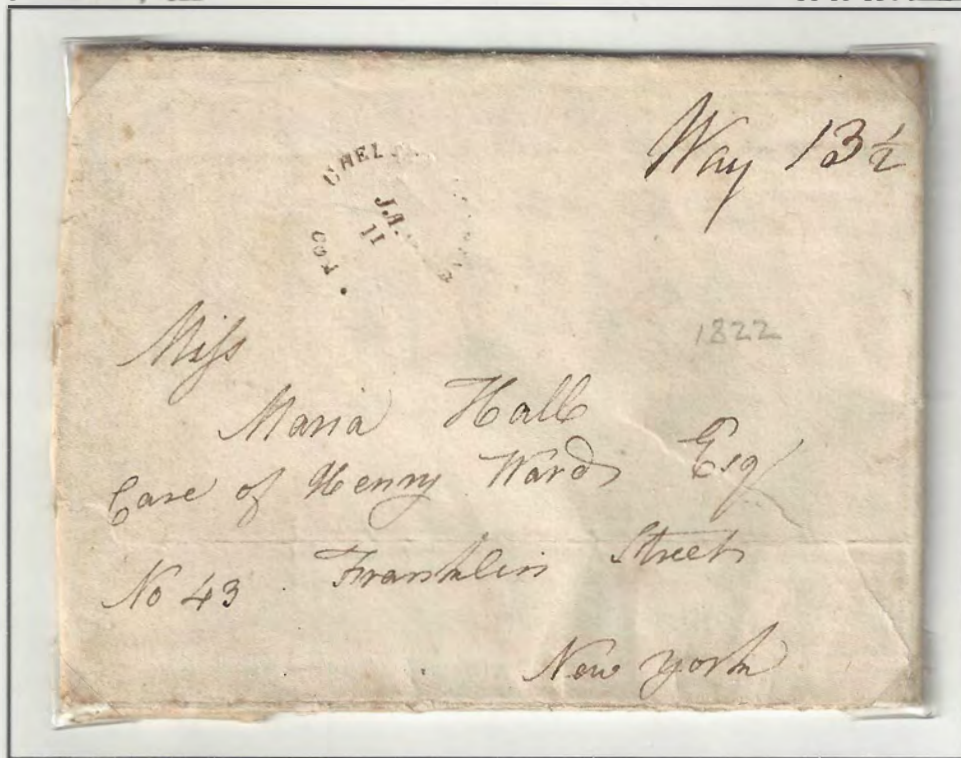 Way 13½
JA.
11
CON
1822
Miss
Maria Hall
Care of Henry Ward Esq
No 43 Franklin Street
New York